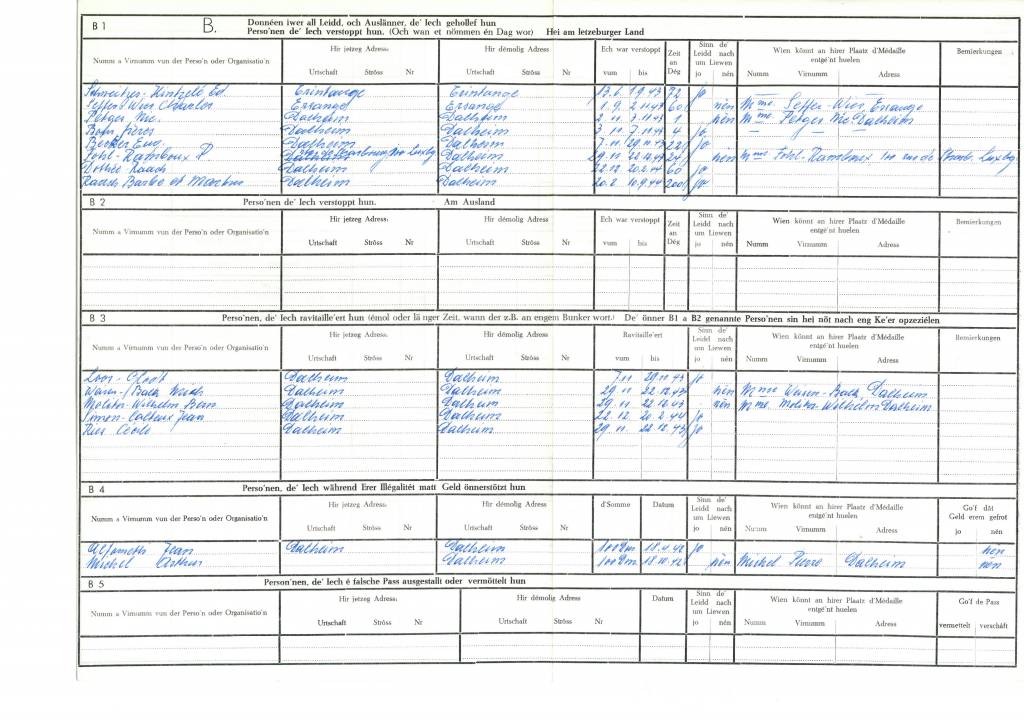 B 1 B. Donnéen iwer all Leidd, och Auslänner, de' Iech gehollef hun
Perso'nen de' Iech verstoppt hun. (Och wan et nömmen én Dag wor) Hei am letzeburger Land
Numm a Virnumm vun der Perso'n oder Organisatio'n
Hir jetzeg Adress:
Urtschaft Ströss Nr
Hir démolig Adress:
Urtschaft Ströss Nr
Ech war verstoppt
vum bis
Zeit an Dég
Sinn de' Leidd nach um Liewen
jo nén
Wien könnt an hirer Plaatz d'Médaille entgé'nt huelen
Numm Virnumm Adress
Bemierkungen
Ed. Erintange Erintange 13.6. 1.9.43 72 jo
Seffer Wies Charles Ersange Ersange 1.9. 2.11.43 60 nén Mme Seffer-Wies Ersange
Petger Nic. Dalheim Dalheim 2.11. 3.11.43 1 nén Mme Petger Nic Dalheim
frères Dalheim Dalheim 3.11. 7.11.43 4 jo
Becker Eug. Dalheim Dalheim 7.11. 29.11.43 22 jo
Fohl-Ramboux P Luxbg Dalheim 29.11 22.12.43 24 nén Mme Fohl-Ramboux rue de Strasb. Luxbg.
Raach Dalheim Dalheim 22.12. 20.2.44 60 jo
Raasch Barbe et Dalheim Dalheim 20.2 10.9.44 200 jo
B 2 Perso'nen de' Iech verstoppt hun. Am Ausland
Numm a Virnumm vun der Perso'n oder Organisatio'n
Hir jetzeg Adress:
Urtschaft Ströss Nr
Hir démolig Adress:
Urtschaft Ströss Nr
Ech war verstoppt
vum bis
Zeit an Dég
Sinn de' Leidd nach um Liewen
jo nén
Wien könnt an hirer Plaatz d'Médaille entgé'nt huelen
Numm Virnumm Adress
Bemierkungen
B 3 Perso'nen, de' Iech ravitaille'ert hun (émol oder lä nger Zeit, wann der z.B. an engem Bunker wort.) De' önner B1 a B2 genannte Perso'nen sin hei nöt nach eng Ke'er opzeziélen
Numm a Virnumm vun der Perso'n oder Organisatio'n
Hir jetzeg Adress:
Urtschaft Ströss Nr
Hir démolig Adress:
Urtschaft Ströss Nr
Ravitaille'ert
vum bis
Sinn de' Leidd nach um Liewen
jo nén
Wien könnt an hirer Plaatz d'Médaille entgé'nt huelen
Numm Virnumm Adress
Bemierkungen
Dalheim Dalheim 7.11 29.11.43 jo
Dalheim Dalheim 29.11 22.12.43 nén Mme Dalheim
Molitor-Wilhelm Dalheim Dalheim 29.11 22.12.43 nén Mme. Molitor-Wilhelm Dalheim
Simon- Jean Dalheim Dalheim 22.12. 20.2.44 jo
Cécile Dalheim Dalheim 29.11. 22.12.43 jo
B 4 Perso'nen, de' Iech während Erer Illégalitét matt Geld önnerstötzt hun
Numm a Virnumm vun der Perso'n oder Organisatio'n
Hir jetzeg Adress:
Urtschaft Ströss Nr
Hir démolig Adress:
Urtschaft Ströss Nr
d'Somme
Datum
Sinn de' Leidd nach um Liewen
jo nén
Wien könnt an hirer Plaatz d'Médaille entgé'nt huelen
Numm Virnumm Adress
Go'f dât Geld erem gefrot
jo nén
Jean Dalheim Dalheim 100Dm 18.4.42 jo nén
Michel Arthur Dalheim 100Dm 18.10.42 nén Michel Pierre Dalheim nén
B 5 Person'nen, de' Iech é falsche Pass ausgestallt oder vermöttelt hun
Numm a Virnumm vun der Perso'n oder Organisatio'n
Hir jetzeg Adress:
Urtschaft Ströss Nr
Hir démolig Adress:
Urtschaft Ströss Nr
Datum
Sinn de' Leidd nach um Liewen
jo nén
Wien könnt an hirer Plaatz d'Médaille entgé'nt huelen
Numm Virnumm Adress
Go'f de Pass
vermettelt verschâft